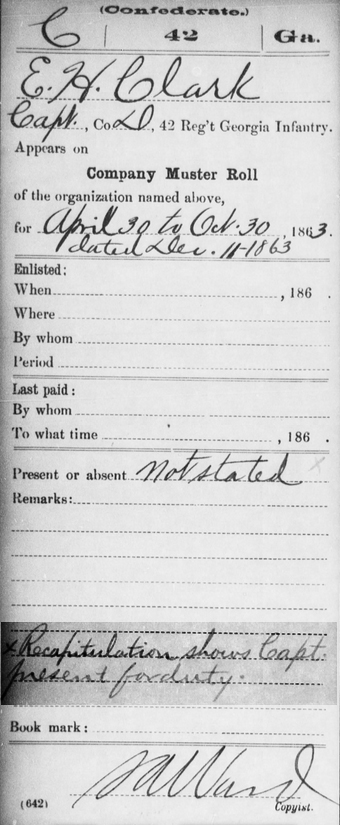 (Confederate.)
C | 42 | Ga.
E. H. Clark
Capt., Co. D, 42 Reg't Georgia Infantry.
Appears on
Company Muster Roll
of the organization named above,
for April 30 to Oct. 30, 1863.
dated Dec. 11-1863
Enlisted:
When, 186 .
Where
By whom
Period
Last paid:
By whom
To what time, 186 .
Present or absent Not stated x
Remarks:
x Recapitulation shows Capt.
present for duty.
Book mark:
(642)
Copyist.